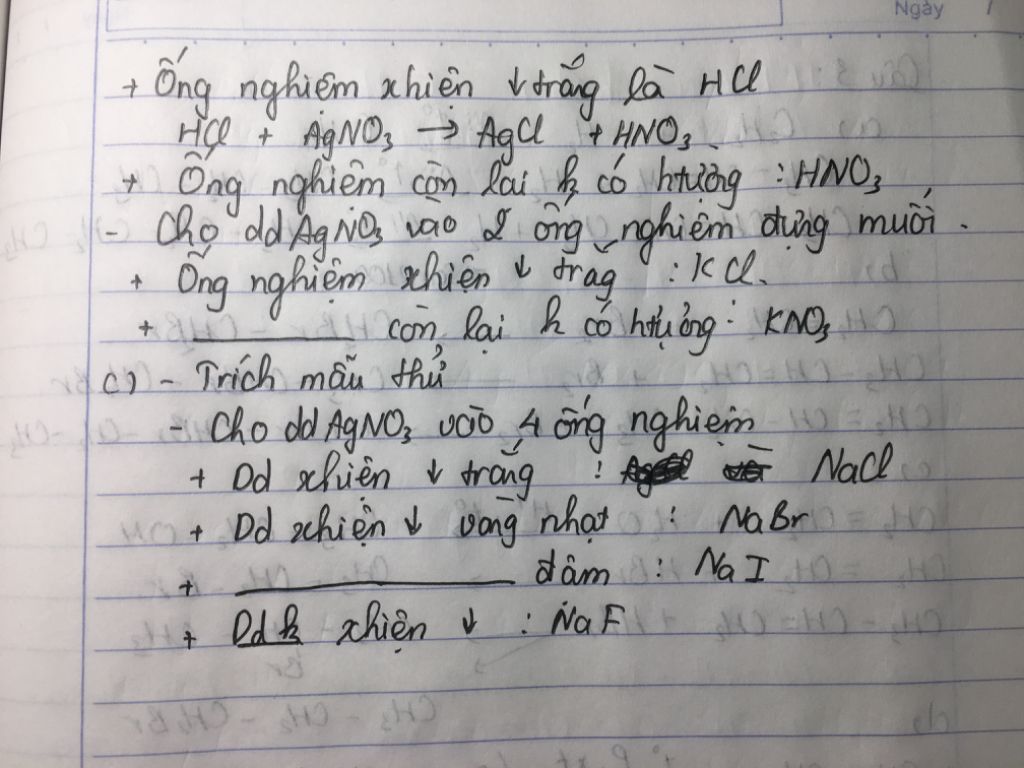 Ngày /
+ Ống nghiệm xhiện ↓ trắng là HCl
HCl + AgNO₃ → AgCl + HNO₃
+ Ống nghiệm còn lại k có htượng : HNO₃
- Cho dd AgNO₃ vào 2 ống nghiệm đựng muối.
+ Ống nghiệm xhiện ↓ trắg : KCl.
+ ________ còn lại k có htượng: KNO₃
c) - Trích mẫu thử
- Cho dd AgNO₃ vào 4 ống nghiệm
+ Dd xhiện ↓ trắng : NaCl
+ Dd xhiện ↓ vàng nhạt : NaBr
+ ________ đâm : NaI
+ Dd k xhiện ↓ : NaF